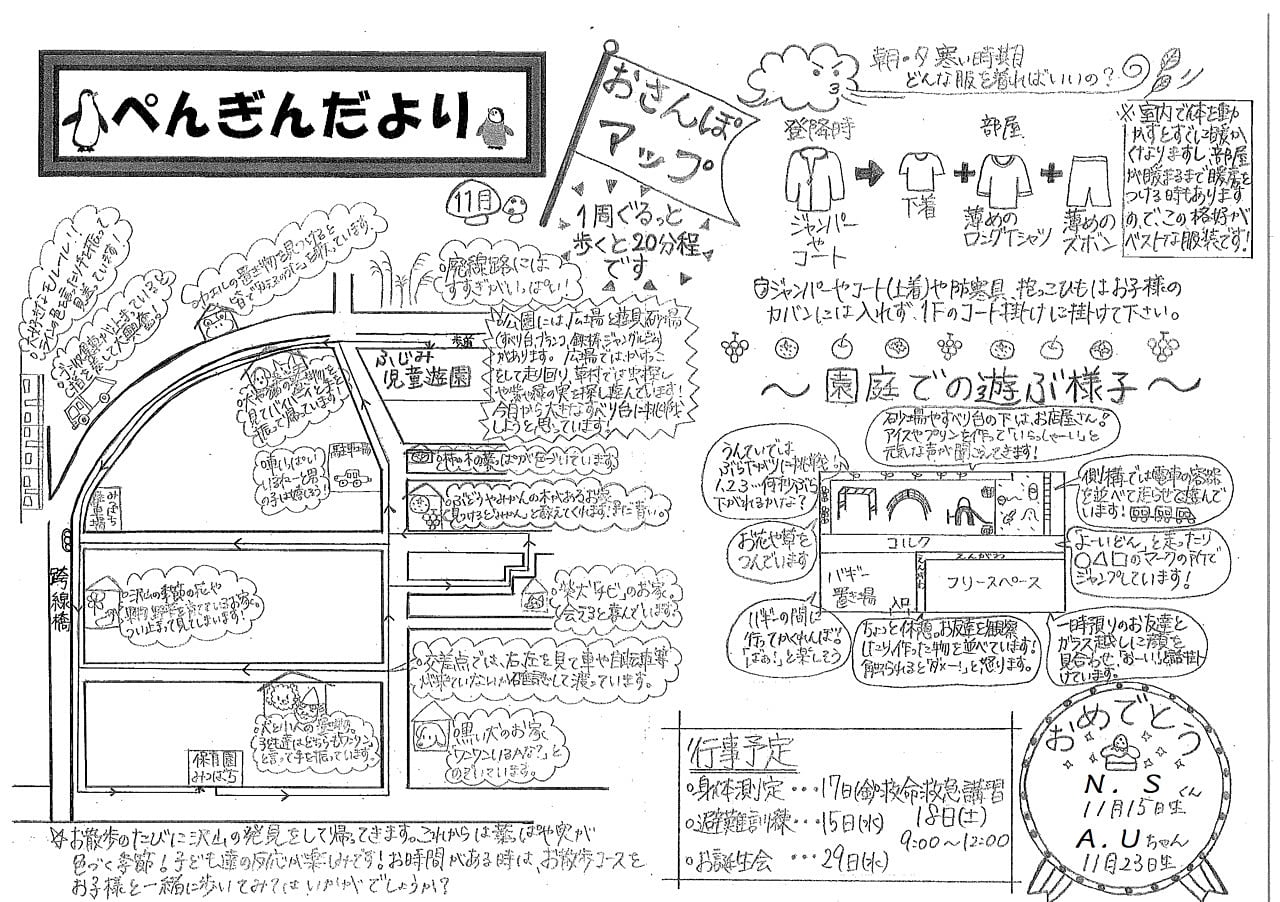 ぺんぎんだより
11月
おさんぽ
マップ
1周ぐるっと
歩くと20分程
です
大好きなモノレール!!
廃線路には
すすきがいっぱい!
歩道
ふじみ
児童遊園
公園には、広場と遊具、砂場
(すべり台、ブランコ、鉄棒、ジャングルジム)
があります。広場では、かけっこ
今月から大きなすべり台に挑戦
しようと思っています!
駐車場
車いっぱい
柿の木の葉っぱが色づいています。
ぶどうやみかんの木があるお家
見つけると「みかん」と教えてくれます!
みつばち
駐車場
跨線橋
沢山の季節の花や
つい止まって見てしまいます!
柴犬「チビ」のお家。
会えると喜んでいます。
交差点では、右左を見て車や自転車等
が来ていないか確認して渡っています。
黒い犬のお家
「ワンワンいるかな?」と
のぞいています。
犬と小人の置き物。
子ども達はどちらも「ワンワン」
と言って手を振っています。
保育園
みつばち
お散歩のたびに沢山の発見をして帰ってきます。これからは葉っぱや実が
色づく季節!子ども達の反応が楽しみです!お時間がある時は、お散歩コースを
お子様と一緒に歩いてみてはいかがでしょうか?
朝・夕寒い時期
どんな服を着ればいいの?
登降時
部屋
ジャンパー
や
コート
下着
薄めの
ロングTシャツ
薄めの
ズボン
※室内で体を動
かすとすぐに暖か
くなりますし、部屋
が暖まるまで暖房を
つける時もあります
ので、この格好が
ベストな服装です!
ジャンパーやコート(上着)や防寒具、抱っこひもはお子様の
カバンには入れず、1Fのコート掛けに掛けて下さい。
〜園庭での遊ぶ様子〜
砂場やすべり台の下は、お店屋さん!
アイスやプリンを作って「いらっしゃーい」と
元気な声が聞こえてきます!
うんていでは
ぶら下がりに挑戦!
1.2.3…何秒ぶら
下がれるかな?
側溝では電車の容器
を並べて走らせて遊んで
います!
お花や草を
つんでいます
コルク
えんがわ
バギー
置き場
えんがわ
フリースペース
入口
よーいどん。と走ったり
○△□のマークの所で
ジャンプしています!
バギーの間に
行ってかくれんぼ!?
「ばぁ!」と楽しそう
ちょっと休憩。お友達を観察
したり、作った物を並べています!
触られると「ダメー!」と怒ります。
一時預りのお友達と
ガラス越しに顔を
見合わせ、「おーい!」と話し掛
けています。
行事予定
身体測定・・・17日(金)
救命救急講習
18日(土)
9:00〜12:00
避難訓練・・・15日(水)
お誕生会・・・29日(水)
おめでとう
N.Sくん
11月15日生
A.Uちゃん
11月23日生